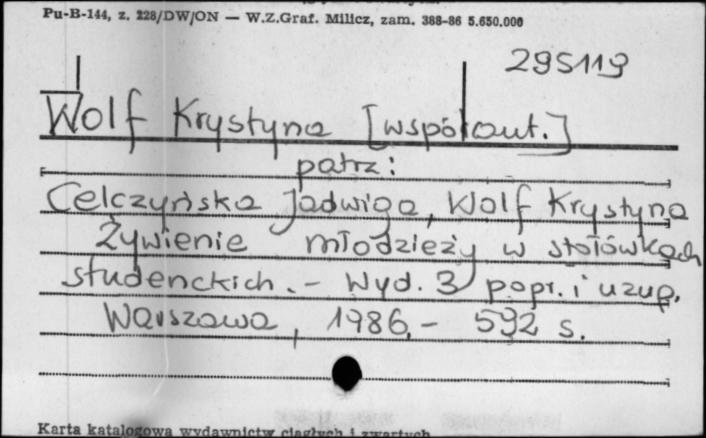 Pu-B-144, z. 228/DW/ON — W.Z.Graf. Milicz, zam. 388-86 5.650.000
295119
Wolf Krystyna [współaut.]
patrz:
Celczyńska Jadwiga, Wolf Krystyna
Żywienie młodzieży w stołówkach
studenckich. - Wyd. 3 popr. i uzup.
Warszawa, 1986. - 592 s.
Karta katalogowa wydawnictw ciągłych i zwartych